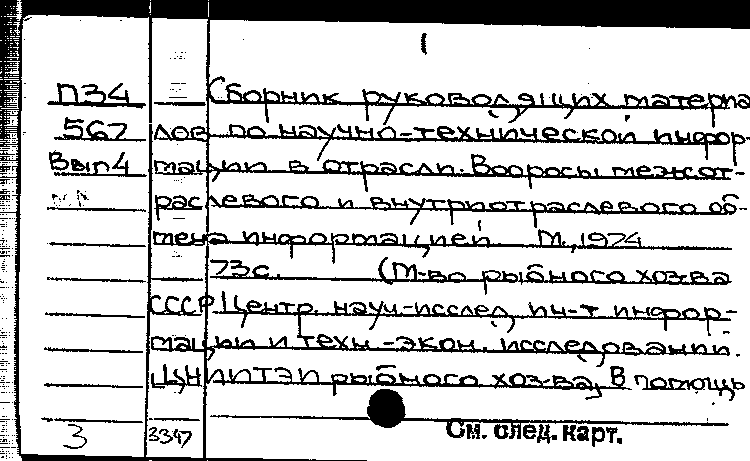 1
П34 Сборник руководящих материа
567 лов по научно-технической инфор-
Вып4 мации в отрасли. Вопросы межот-
раслевого и внутриотраслевого об-
мена информацией М., 1974
73с. (М-во рыбного хоз-ва
СССР Центр. науч-исслед. ин-т инфор-
мации и техн-экон. исследований.
ЦНИИТЭИ рыбного хоз-ва, В помощь
3 3347 См. след. карт.